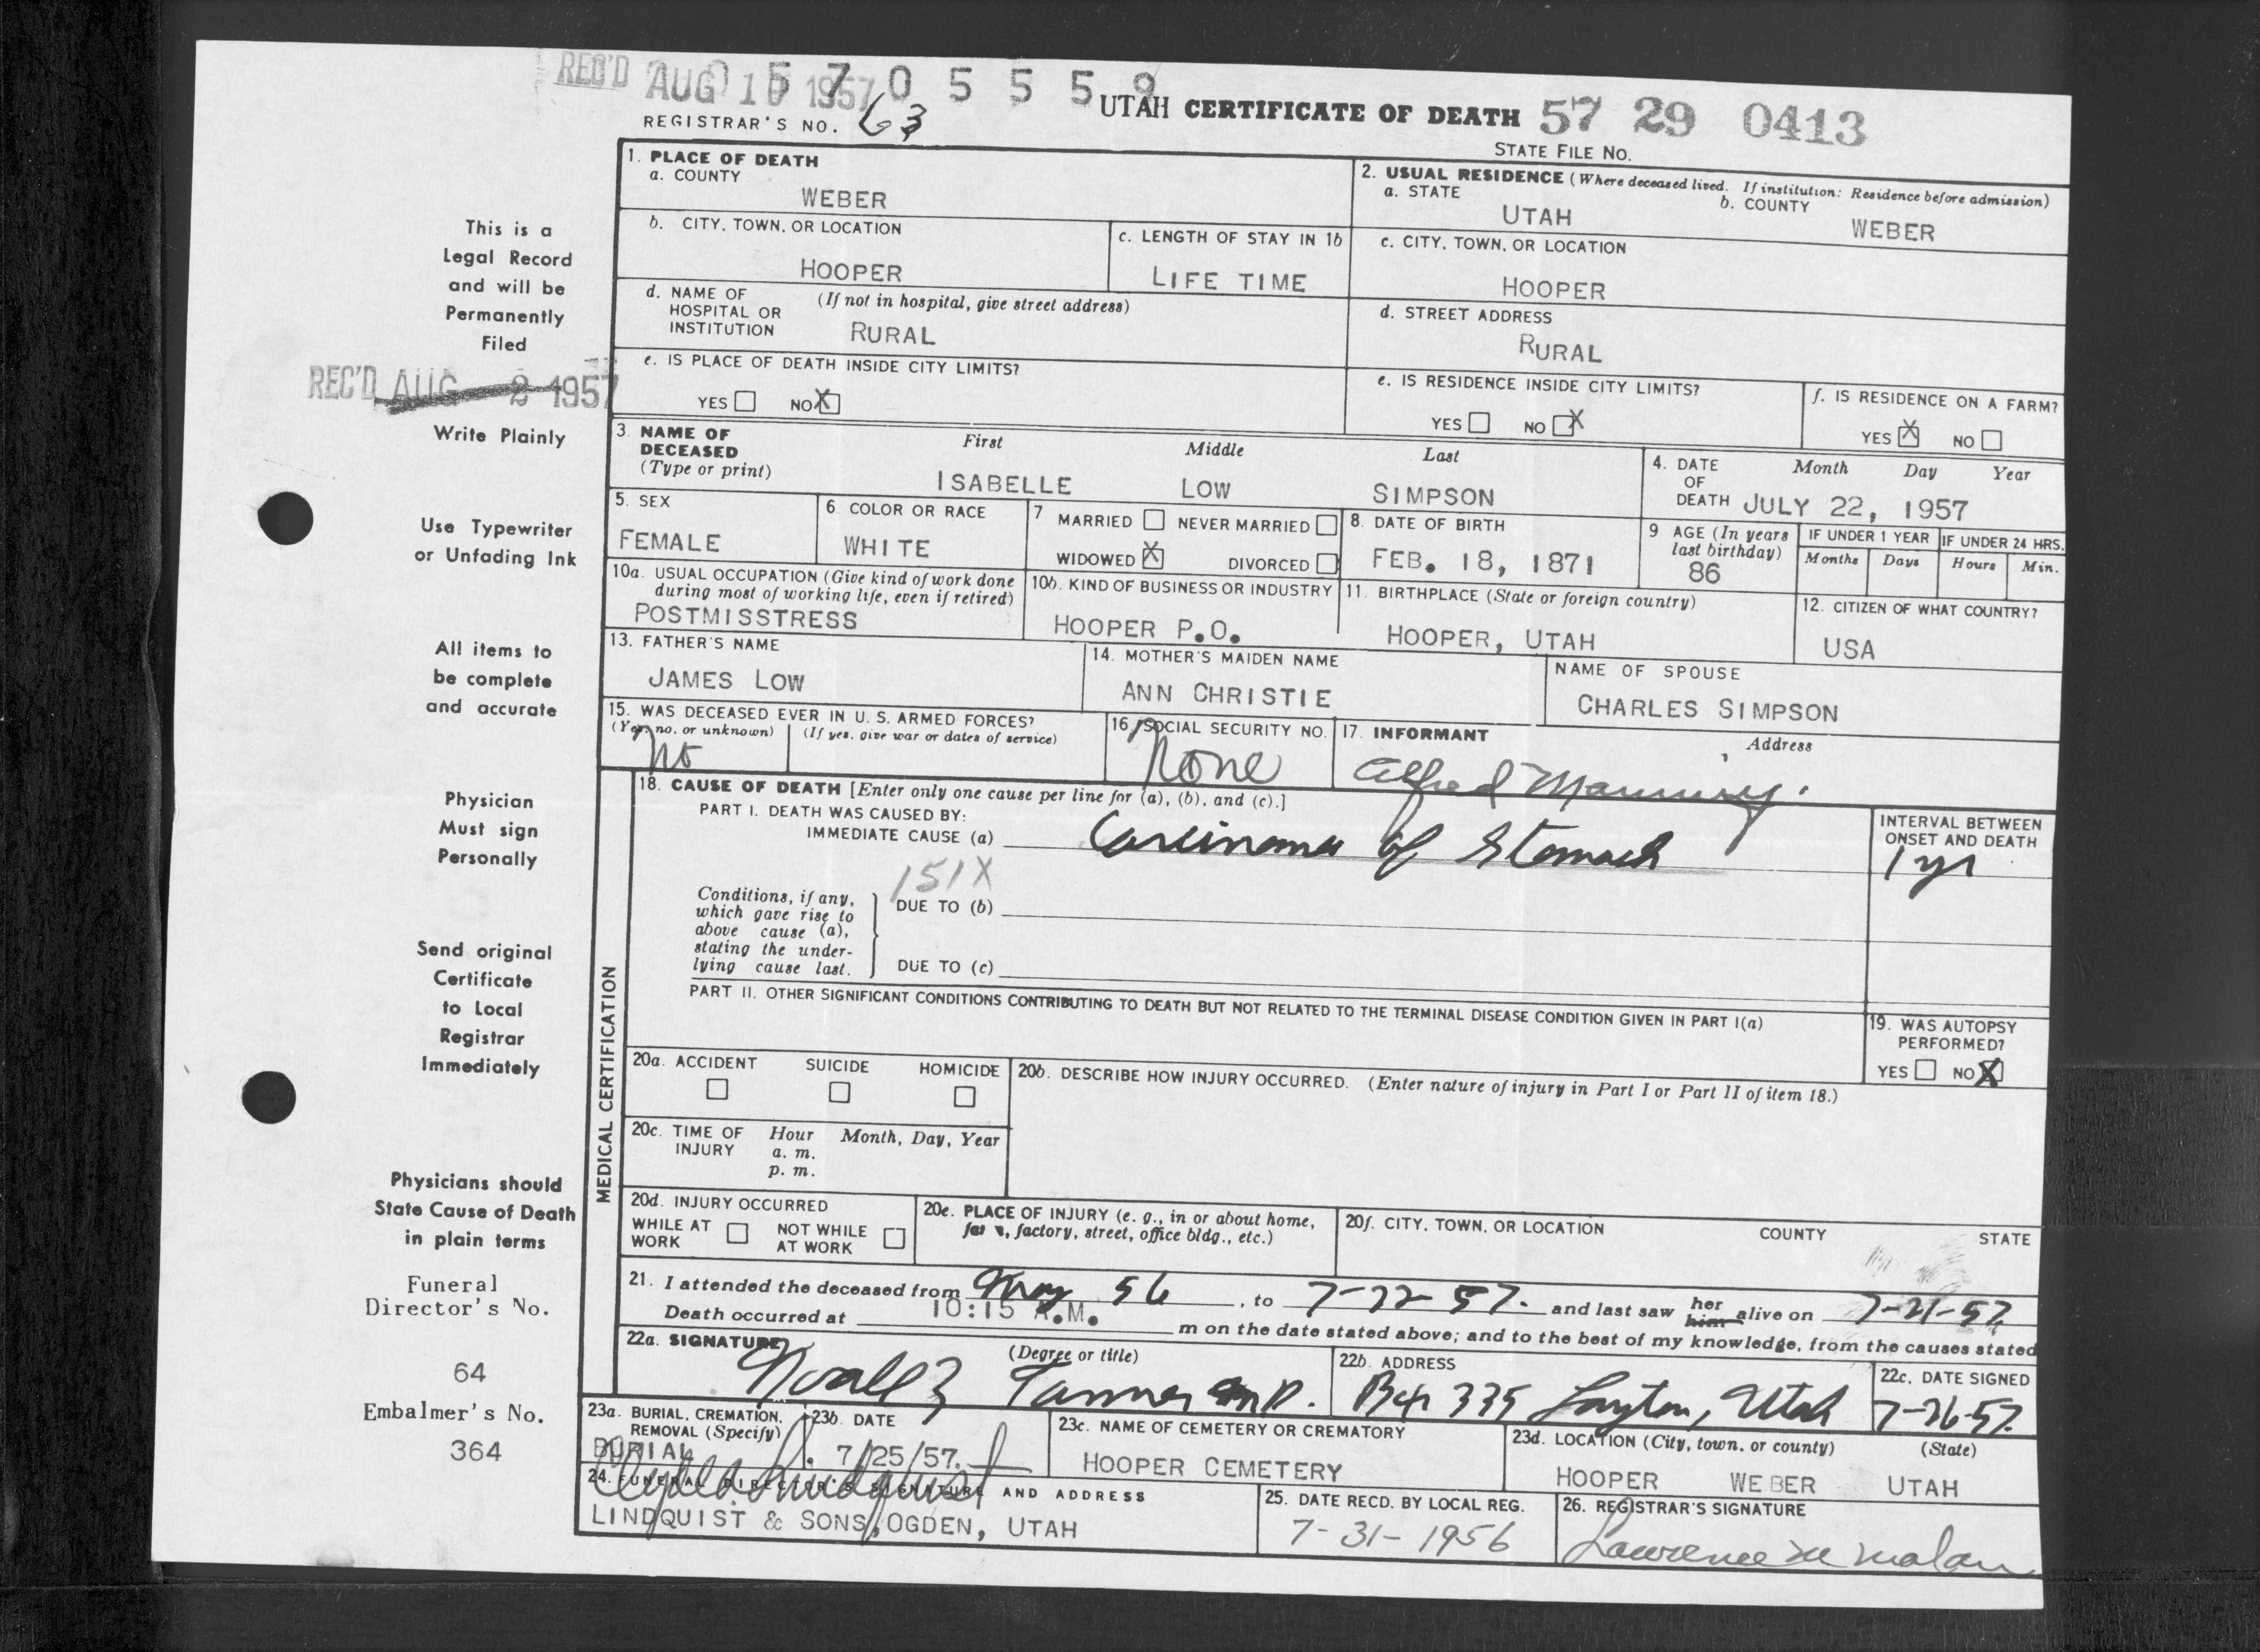 REC'D AUG 1 1957 0 5 5 5 9
UTAH CERTIFICATE OF DEATH 57 29 0413
REGISTRAR'S NO. 63
STATE FILE NO.
This is a
Legal Record
and will be
Permanently
Filed
REC'D AUG 2 1957
Write Plainly
Use Typewriter
or Unfading Ink
All items to
be complete
and accurate
Physician
Must sign
Personally
Send original
Certificate
to Local
Registrar
Immediately
Physicians should
State Cause of Death
in plain terms
Funeral
Director's No.
64
Embalmer's No.
364
1. PLACE OF DEATH
a. COUNTY
WEBER
2. USUAL RESIDENCE (Where deceased lived. If institution: Residence before admission)
a. STATE b. COUNTY
UTAH WEBER
b. CITY, TOWN, OR LOCATION
HOOPER
c. LENGTH OF STAY IN 1b
LIFE TIME
c. CITY, TOWN, OR LOCATION
HOOPER
d. NAME OF (If not in hospital, give street address)
HOSPITAL OR
INSTITUTION RURAL
d. STREET ADDRESS
RURAL
e. IS PLACE OF DEATH INSIDE CITY LIMITS?
YES NO X
e. IS RESIDENCE INSIDE CITY LIMITS?
YES NO X
f. IS RESIDENCE ON A FARM?
YES X NO
3. NAME OF First Middle Last
DECEASED
(Type or print) ISABELLE LOW SIMPSON
4. DATE Month Day Year
OF
DEATH JULY 22, 1957
5. SEX
FEMALE
6 COLOR OR RACE
WHITE
7 MARRIED NEVER MARRIED
WIDOWED X DIVORCED
8. DATE OF BIRTH
FEB. 18, 1871
9 AGE (In years
last birthday)
86
IF UNDER 1 YEAR IF UNDER 24 HRS.
Months Days Hours Min.
10a. USUAL OCCUPATION (Give kind of work done
during most of working life, even if retired)
POSTMISSTRESS
10b. KIND OF BUSINESS OR INDUSTRY
HOOPER P.O.
11. BIRTHPLACE (State or foreign country)
HOOPER, UTAH
12. CITIZEN OF WHAT COUNTRY?
USA
13. FATHER'S NAME
JAMES LOW
14. MOTHER'S MAIDEN NAME
ANN CHRISTIE
NAME OF SPOUSE
CHARLES SIMPSON
15. WAS DECEASED EVER IN U. S. ARMED FORCES?
(Yes, no, or unknown) (If yes, give war or dates of service)
no
16. SOCIAL SECURITY NO.
None
17. INFORMANT Address
Alfred Manning.
18. CAUSE OF DEATH [Enter only one cause per line for (a), (b), and (c).]
PART I. DEATH WAS CAUSED BY:
IMMEDIATE CAUSE (a) Carcinoma of Stomach
INTERVAL BETWEEN
ONSET AND DEATH
1 yr
151X
Conditions, if any,
which gave rise to
above cause (a),
stating the under-
lying cause last.
DUE TO (b)
DUE TO (c)
PART II. OTHER SIGNIFICANT CONDITIONS CONTRIBUTING TO DEATH BUT NOT RELATED TO THE TERMINAL DISEASE CONDITION GIVEN IN PART I(a)
19. WAS AUTOPSY
PERFORMED?
YES NO X
MEDICAL CERTIFICATION
20a. ACCIDENT SUICIDE HOMICIDE
20b. DESCRIBE HOW INJURY OCCURRED. (Enter nature of injury in Part I or Part II of item 18.)
20c. TIME OF Hour Month, Day, Year
INJURY a. m.
p. m.
20d. INJURY OCCURRED
WHILE AT NOT WHILE
WORK AT WORK
20e. PLACE OF INJURY (e. g., in or about home,
farm, factory, street, office bldg., etc.)
20f. CITY, TOWN, OR LOCATION COUNTY STATE
21. I attended the deceased from May 56, to 7-22-57. and last saw her him alive on 7-21-57
Death occurred at 10:15 A.M. m on the date stated above; and to the best of my knowledge, from the causes stated
22a. SIGNATURE (Degree or title)
Noall Z Tanner M.D.
22b. ADDRESS
Box 335 Layton, Utah
22c. DATE SIGNED
7-26-57.
23a. BURIAL, CREMATION,
REMOVAL (Specify)
BURIAL
23b. DATE
7/25/57.
23c. NAME OF CEMETERY OR CREMATORY
HOOPER CEMETERY
23d. LOCATION (City, town, or county) (State)
HOOPER WEBER UTAH
24. FUNERAL DIRECTOR'S SIGNATURE AND ADDRESS
LINDQUIST & SONS, OGDEN, UTAH
25. DATE RECD. BY LOCAL REG.
7-31-1956
26. REGISTRAR'S SIGNATURE
Lawrence M Malan